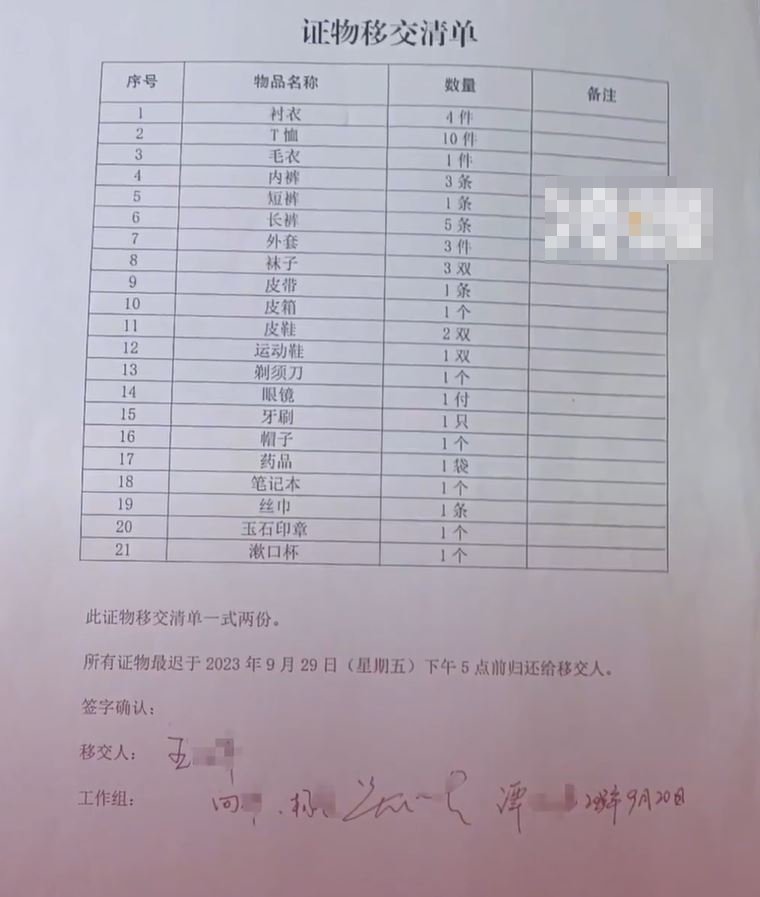 证物移交清单
序号 物品名称 数量 备注
1 衬衣 4件
2 T恤 10件
3 毛衣 1件
4 内裤 3条
5 短裤 1条
6 长裤 5条
7 外套 3件
8 袜子 3双
9 皮带 1条
10 皮箱 1个
11 皮鞋 2双
12 运动鞋 1双
13 剃须刀 1个
14 眼镜 1付
15 牙刷 1只
16 帽子 1个
17 药品 1袋
18 笔记本 1个
19 丝巾 1条
20 玉石印章 1个
21 漱口杯 1个
此证物移交清单一式两份。
所有证物最迟于2023年9月29日（星期五）下午5点前归还给移交人。
签字确认：
移交人：
工作组： 向 杨 谭 9月20日